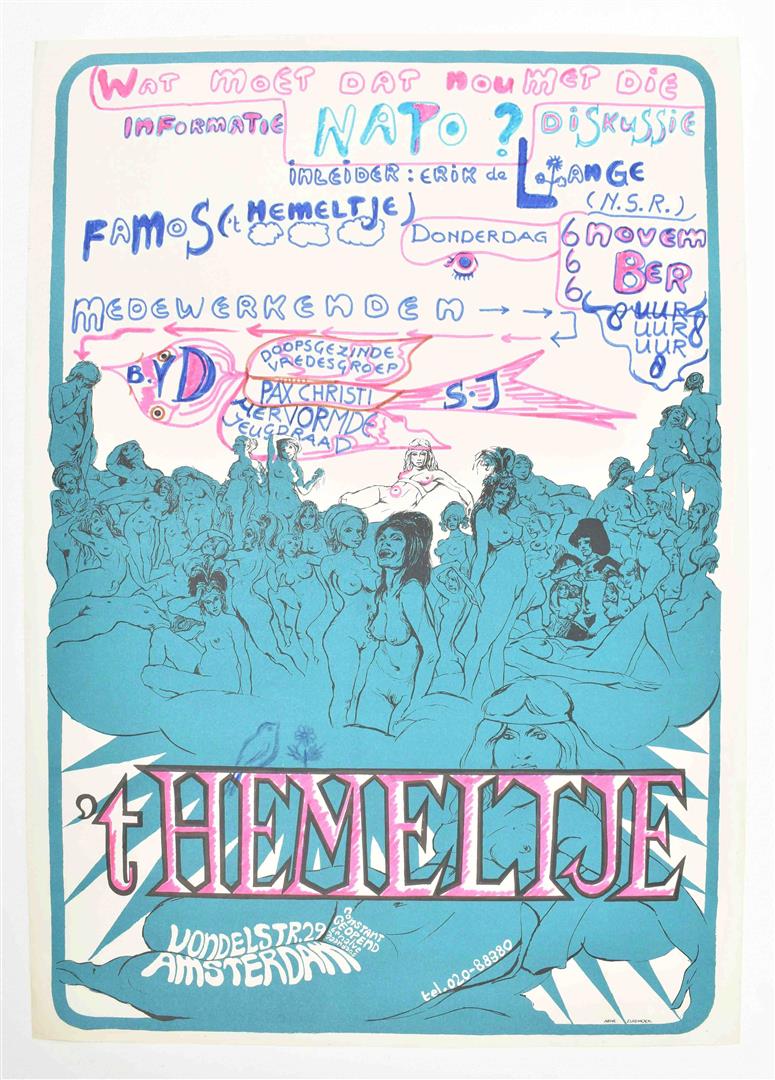 WAT MOET DAT NOU MET DIE
INFORMATIE NATO? DISKUSSIE
INLEIDER: ERIK de LANGE
(N.S.R.)
FAMOS ('t HEMELTJE)
DONDERDAG 6 NOVEM
6 BER
6
MEDEWERKENDEN → → 8 UUR 8
UUR
UUR
8
B.YD
DOOPSGEZINDE
VREDESGROEP
PAX CHRISTI
S.J
HERVORMDE
JEUGDRAAD
't HEMELTJE
VONDELSTR. 29
AMSTERDAM
CONSTANT
GEOPEND
tel. 020-88380